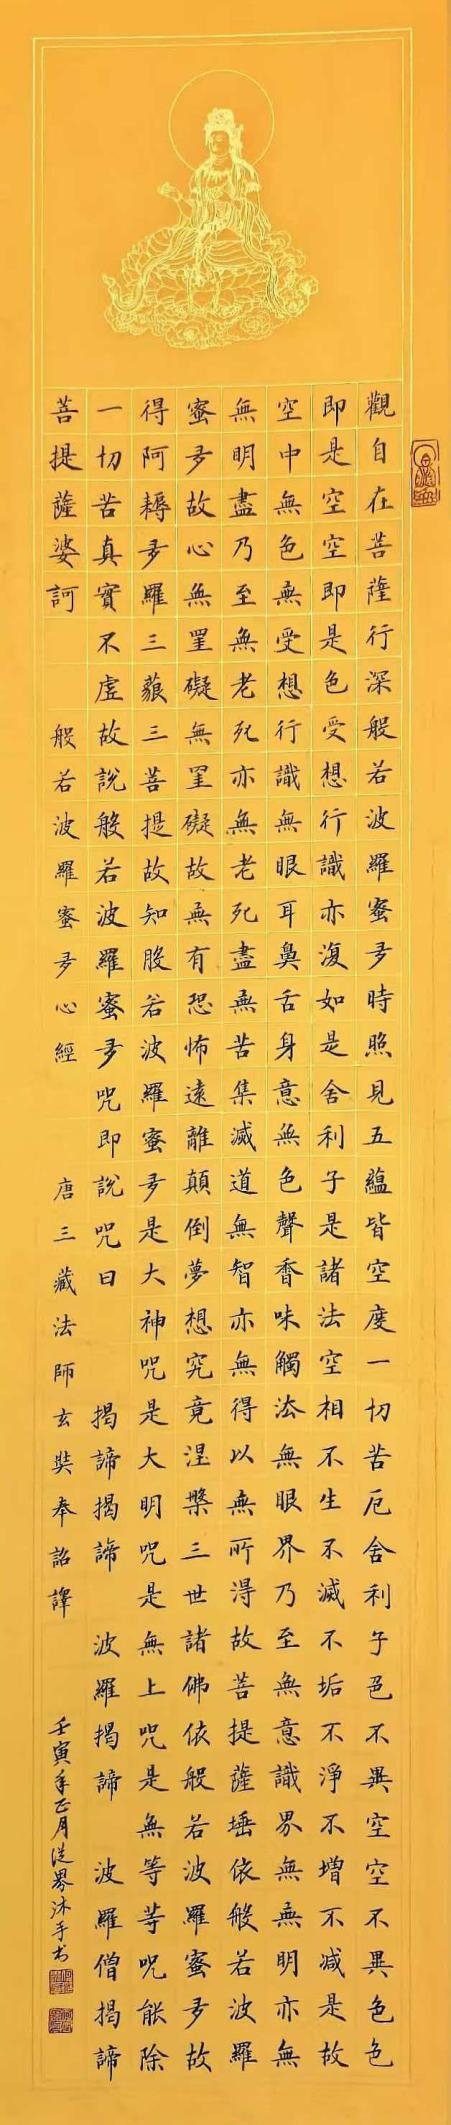 觀自在菩薩行深般若波羅蜜多時照見五蘊皆空度一切苦厄舍利子色不異空空不異色色
即是空空即是色受想行識亦復如是舍利子是諸法空相不生不滅不垢不淨不增不減是故
空中無色無受想行識無眼耳鼻舌身意無色聲香味觸法無眼界乃至無意識界無無明亦無
無明盡乃至無老死亦無老死盡無苦集滅道無智亦無得以無所得故菩提薩埵依般若波羅
蜜多故心無罣礙無罣礙故無有恐怖遠離顛倒夢想究竟涅槃三世諸佛依般若波羅蜜多故
得阿耨多羅三藐三菩提故知般若波羅蜜多是大神咒是大明咒是無上咒是無等等咒能除
一切苦真實不虛故說般若波羅蜜多咒即說咒曰 揭諦揭諦 波羅揭諦 波羅僧揭諦
菩提薩婆訶 般若波羅蜜多心經 唐三藏法師玄奘奉詔譯
壬寅年正月沐手书